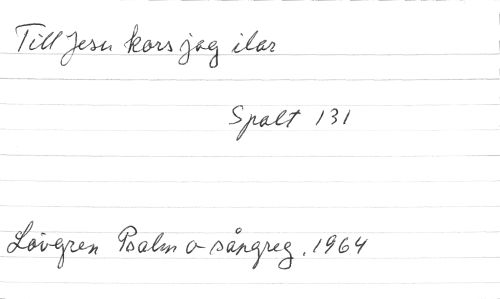 Till Jesu kors jag ilar
Spalt 131
Lövgren Psalm o sångreg. 1964